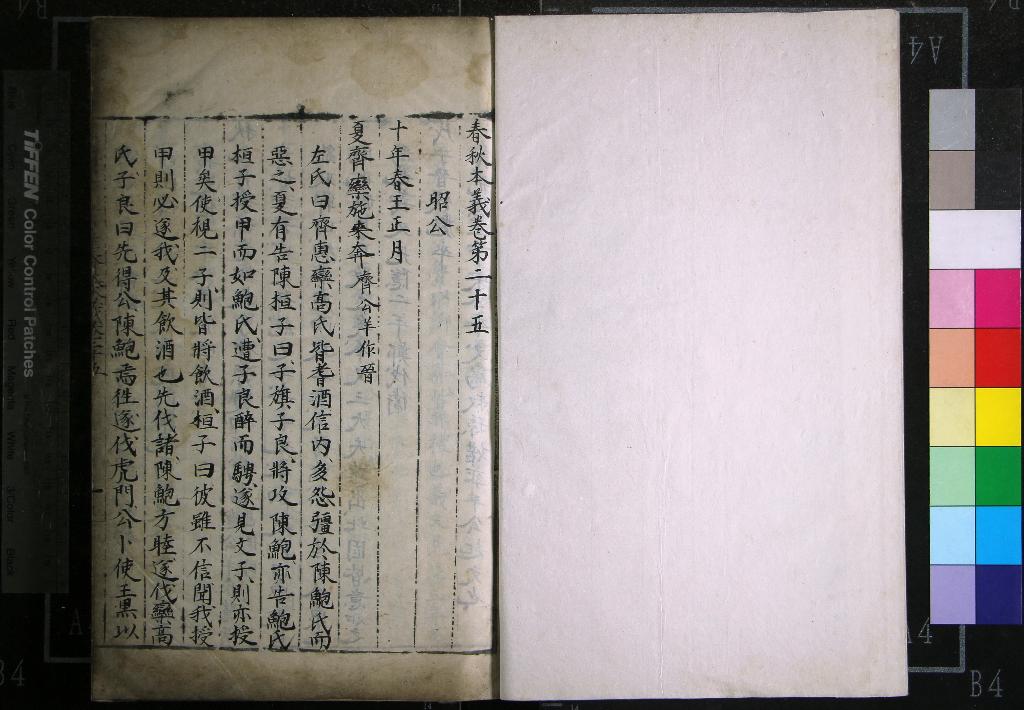 春秋本義卷第二十五
昭公
十年春王正月
夏齊欒施來奔 齊公羊作晉
左氏曰齊惠欒高氏皆耆酒信內多怨彊於陳鮑氏而
惡之夏有告陳桓子曰子旗子良將攻陳鮑亦告鮑氏
桓子授甲而如鮑氏遭子良醉而騁遂見文子則亦授
甲矣使視二子則皆將飲酒桓子曰彼雖不信聞我授
甲則必逐我及其飲酒也先伐諸陳鮑方睦遂伐欒高
氏子良曰先得公陳鮑焉徃遂伐虎門公卜使王黑以
TIFFEN Color Control Patches
A4
A4
B4
B4